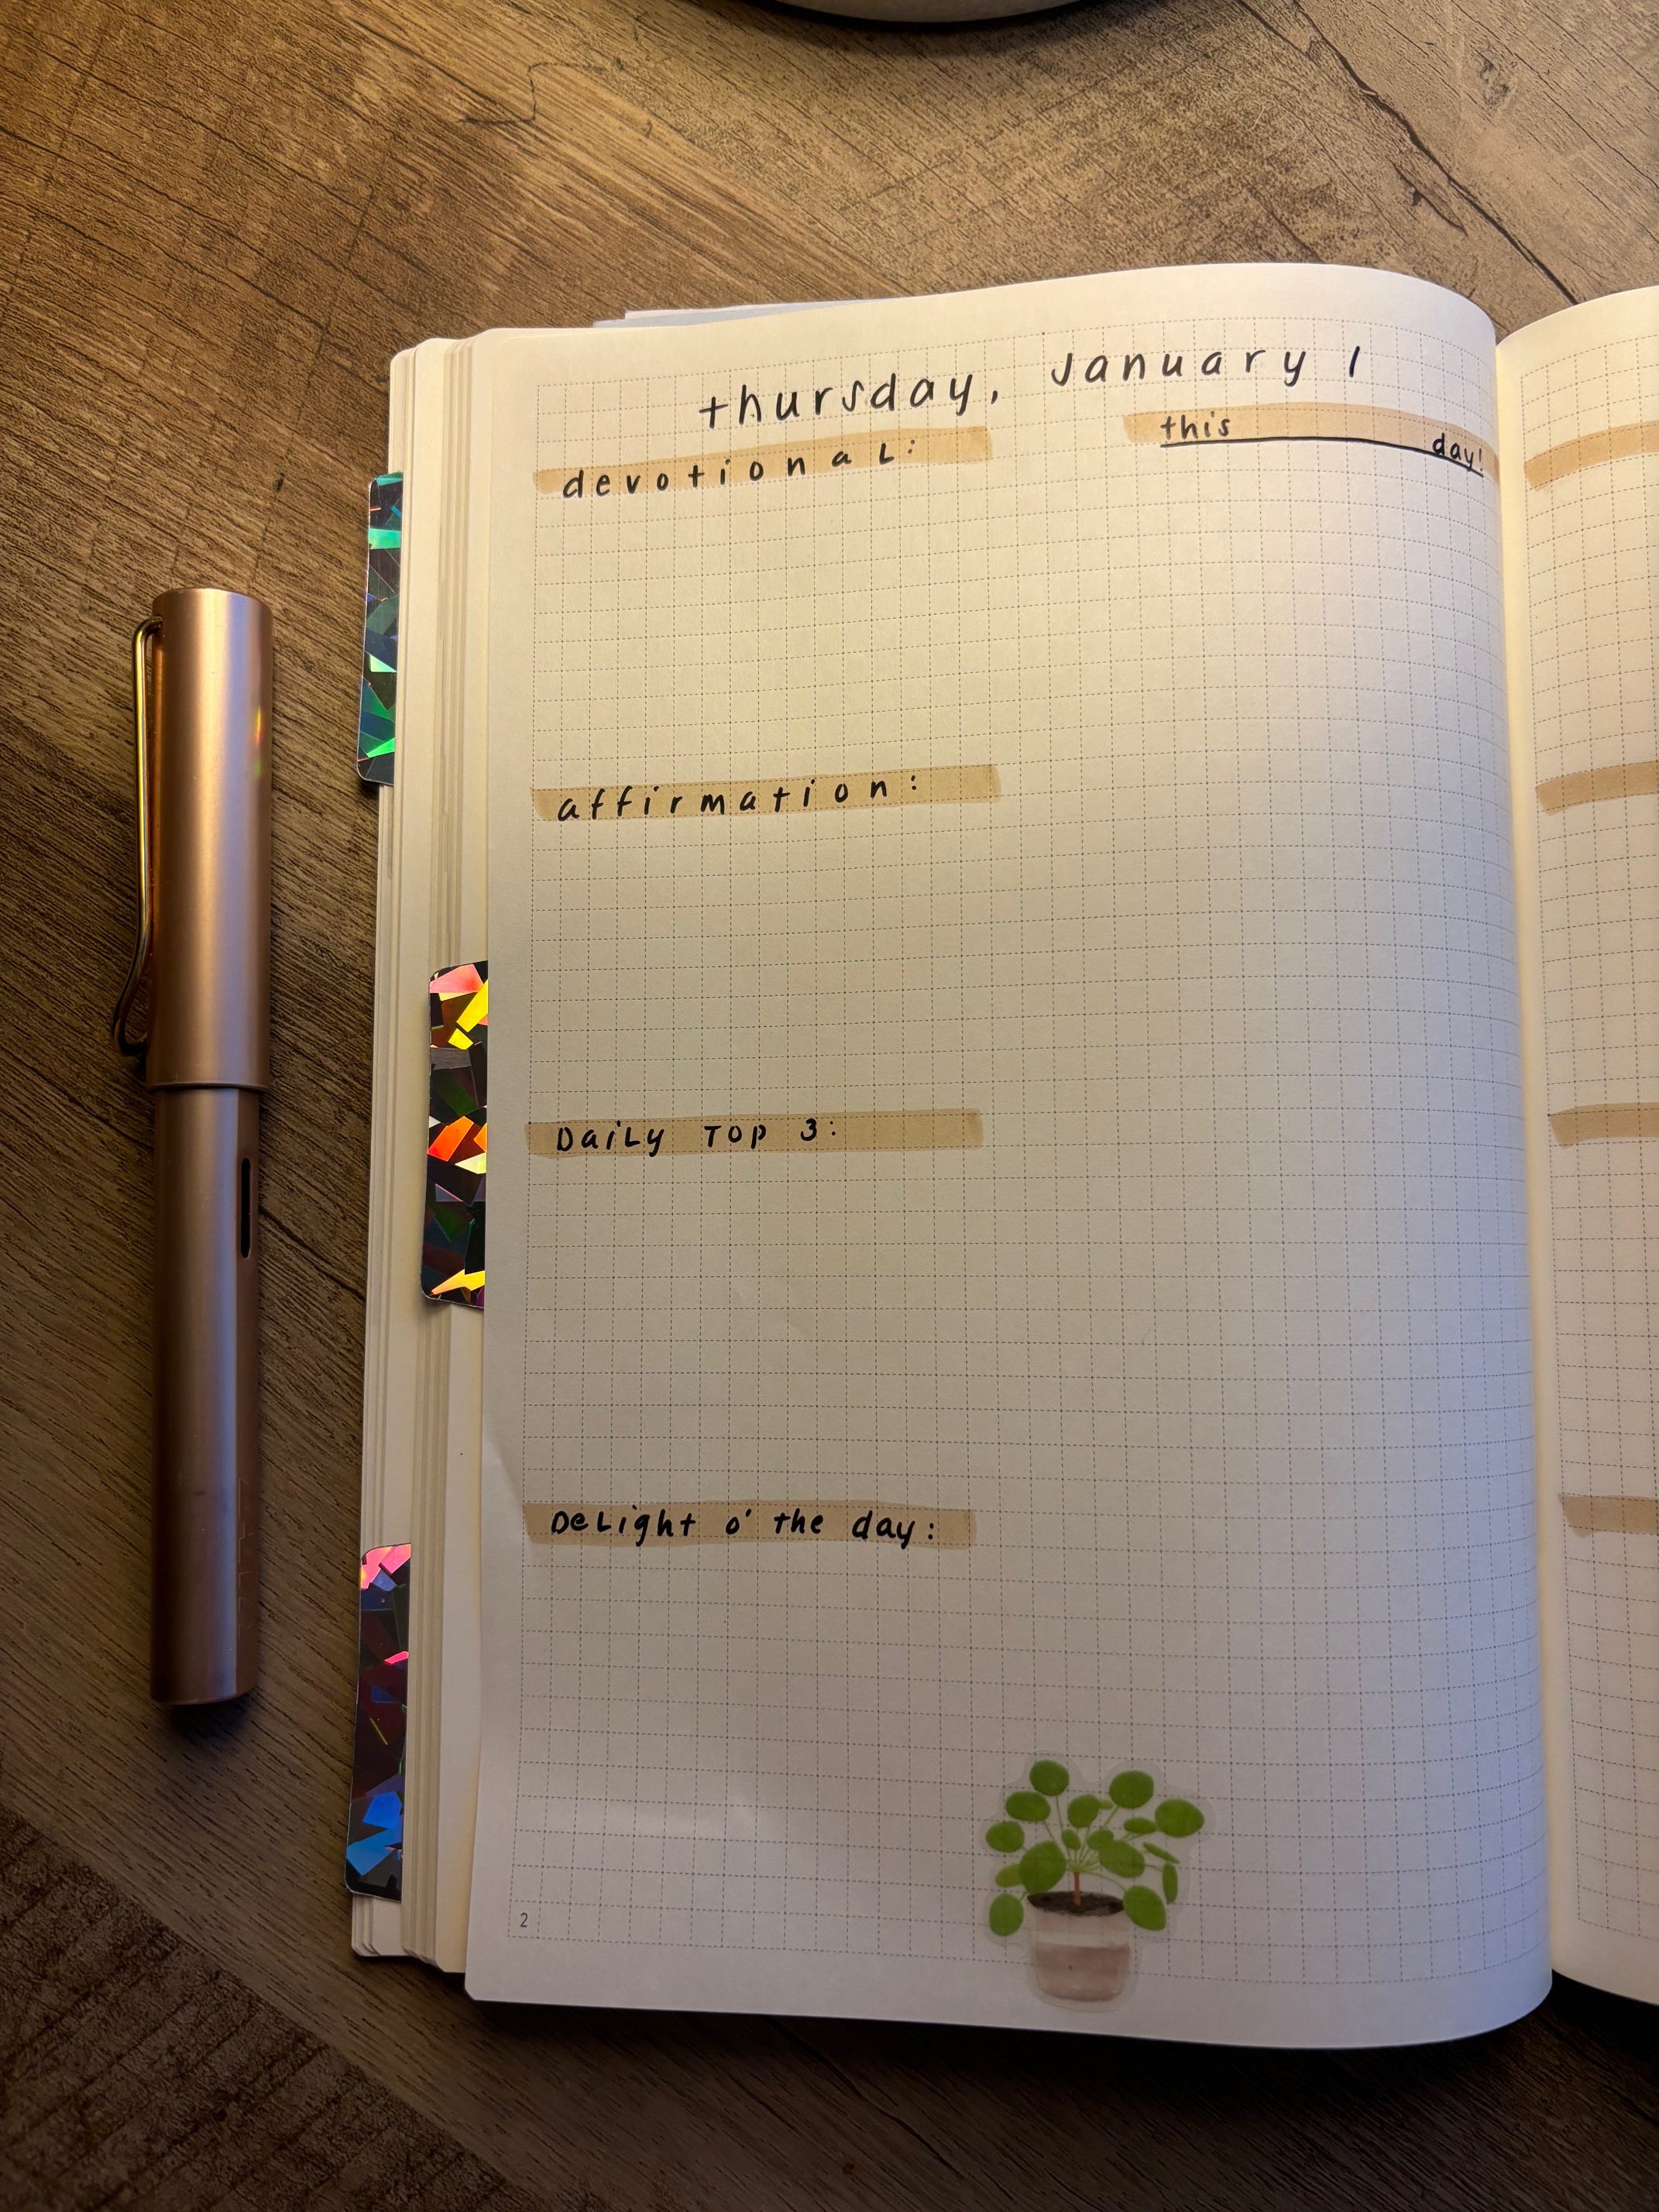 thursday, January 1
this day!
devotional:
affirmation:
Daily Top 3:
Delight o' the day:
2